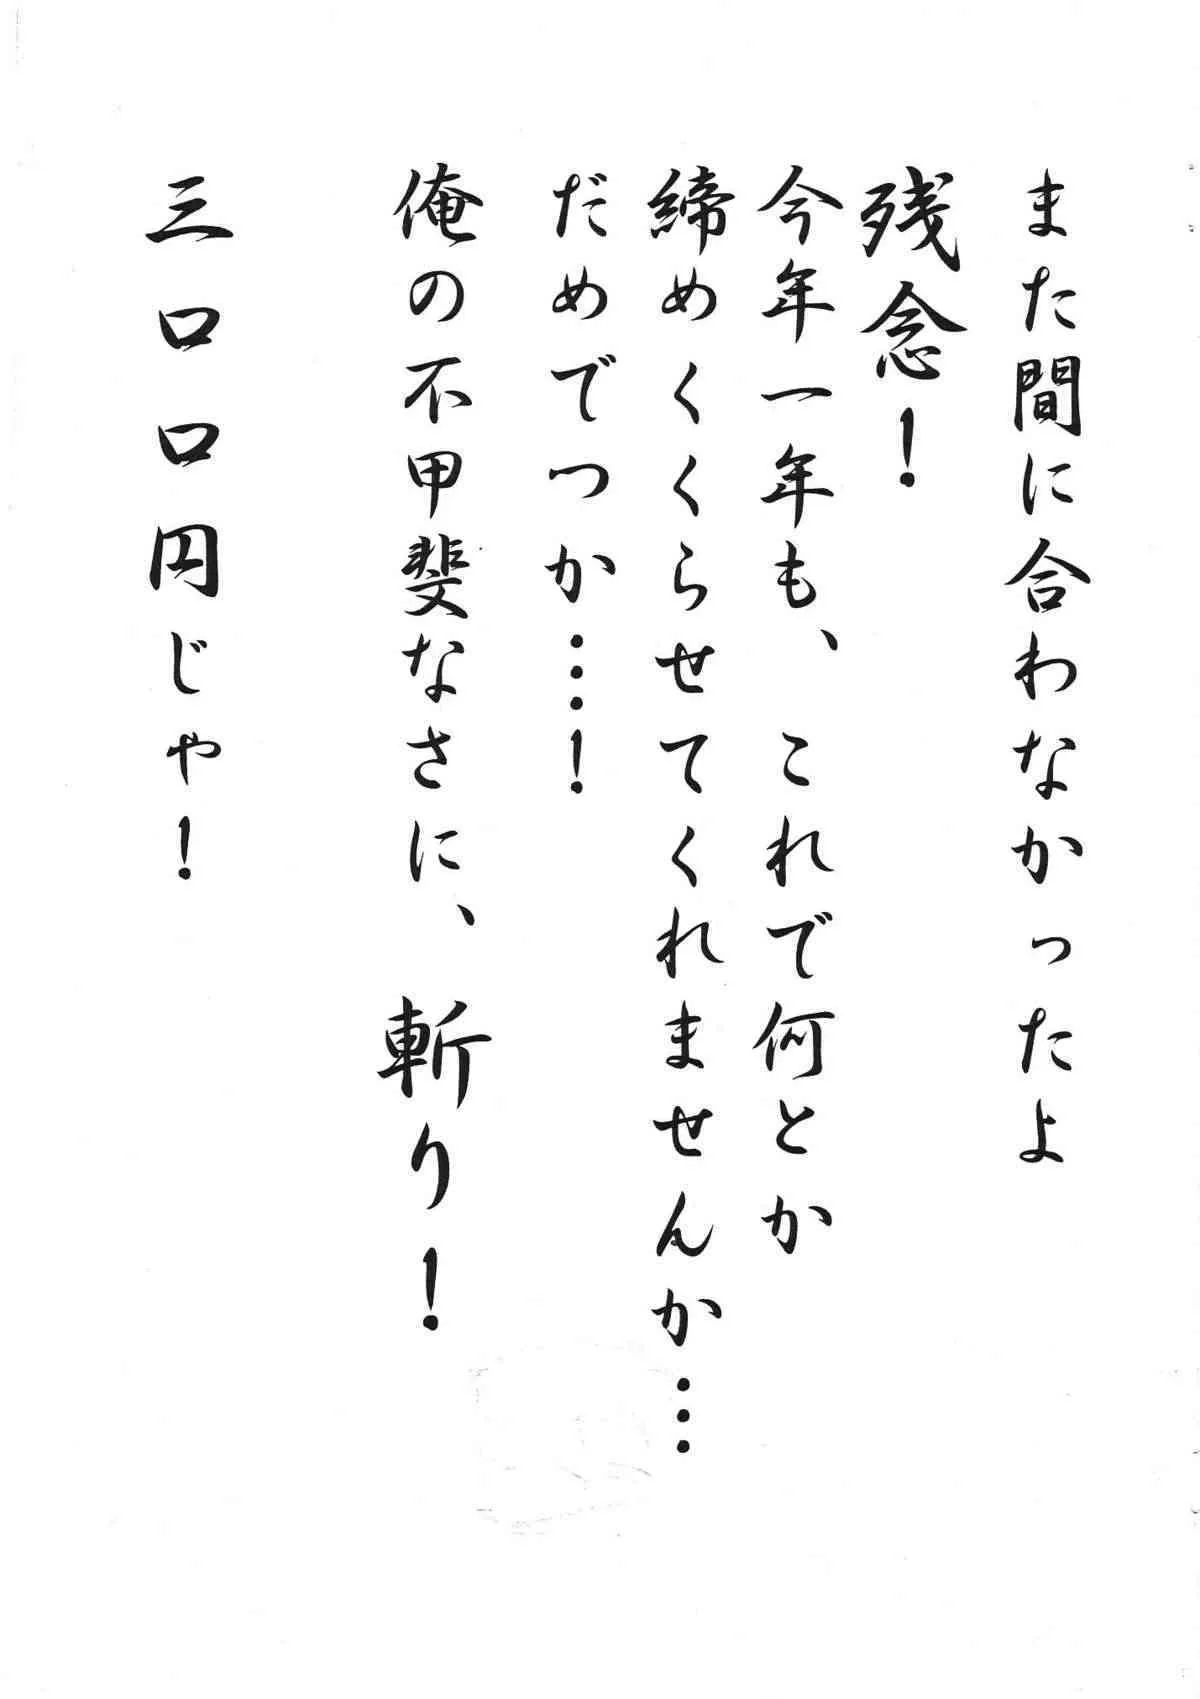 また間に合わなかったよ
残念！
今年一年も、これで何とか
締めくくらせてくれませんか…
だめでつか…！
俺の不甲斐なさに、斬り！
三口口円じゃ！